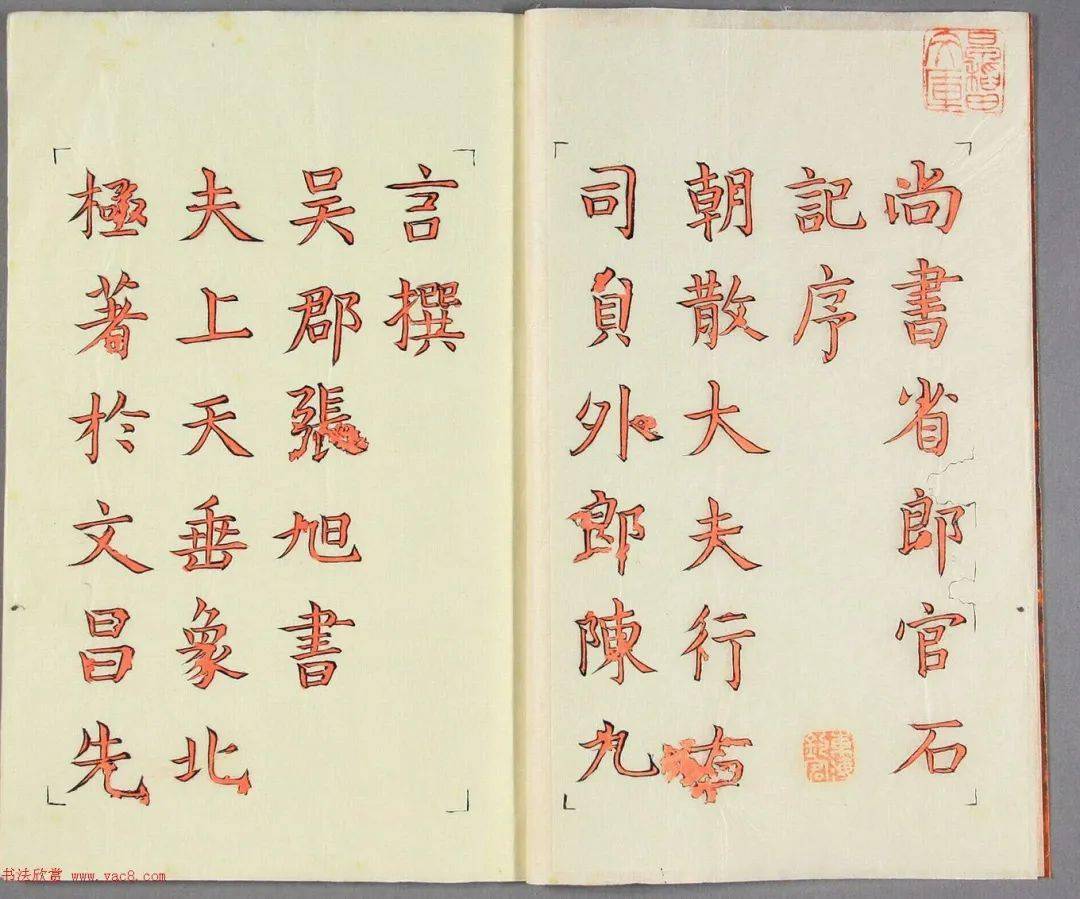 尚書省郎官石
記序
朝散大夫行右
司員外郎陳九
言撰
吴郡張旭書
夫上天垂象北
極著於文昌先
书法欣赏 www.yac8.com